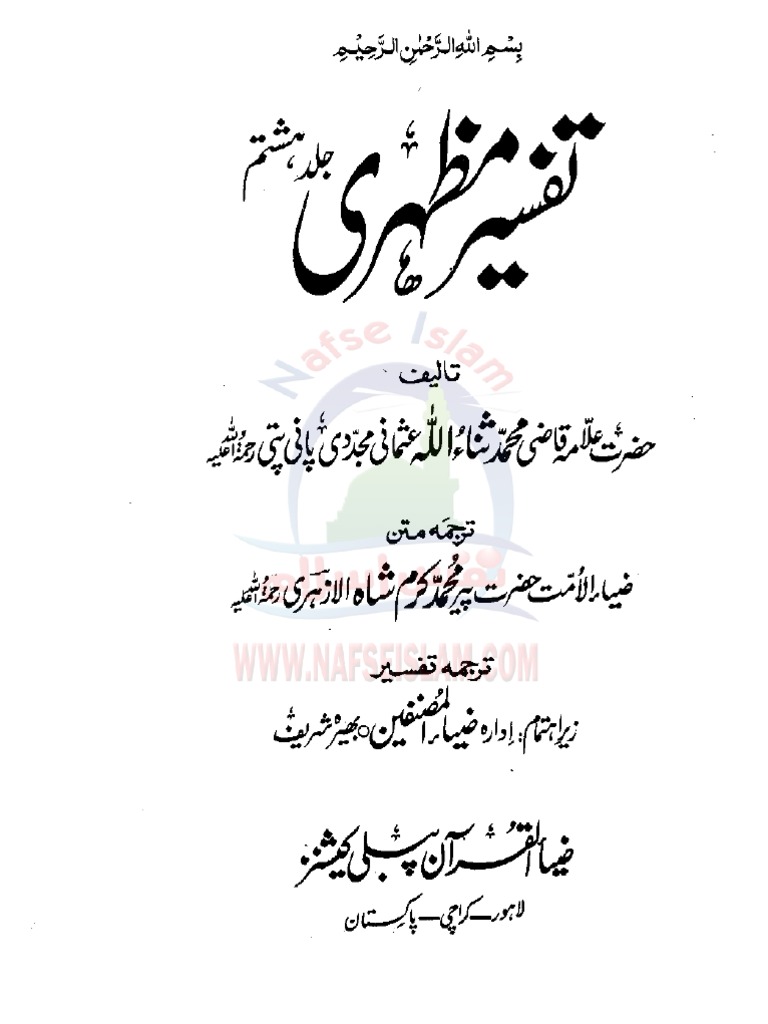 بِسْمِ اللهِ الرَّحْمٰنِ الرَّحِيْمِ
تفسیر مظہری
جلد ہشتم
تالیف
حضرت علامہ قاضی محمد ثناء اللہ عثمانی مجددی پانی پتی رحمۃ اللہ علیہ
ترجمہ متن
ضیاء الامت حضرت پیر محمد کرم شاہ الازہری رحمۃ اللہ علیہ
ترجمہ تفسیر
زیر اہتمام: ادارہ ضیاء المصنفین ○ بھیرہ شریف
ضیاء القرآن پبلی کیشنز
لاہور - کراچی - پاکستان
Nafse Islam
نفس اسلام
WWW.NAFSEISLAM.COM